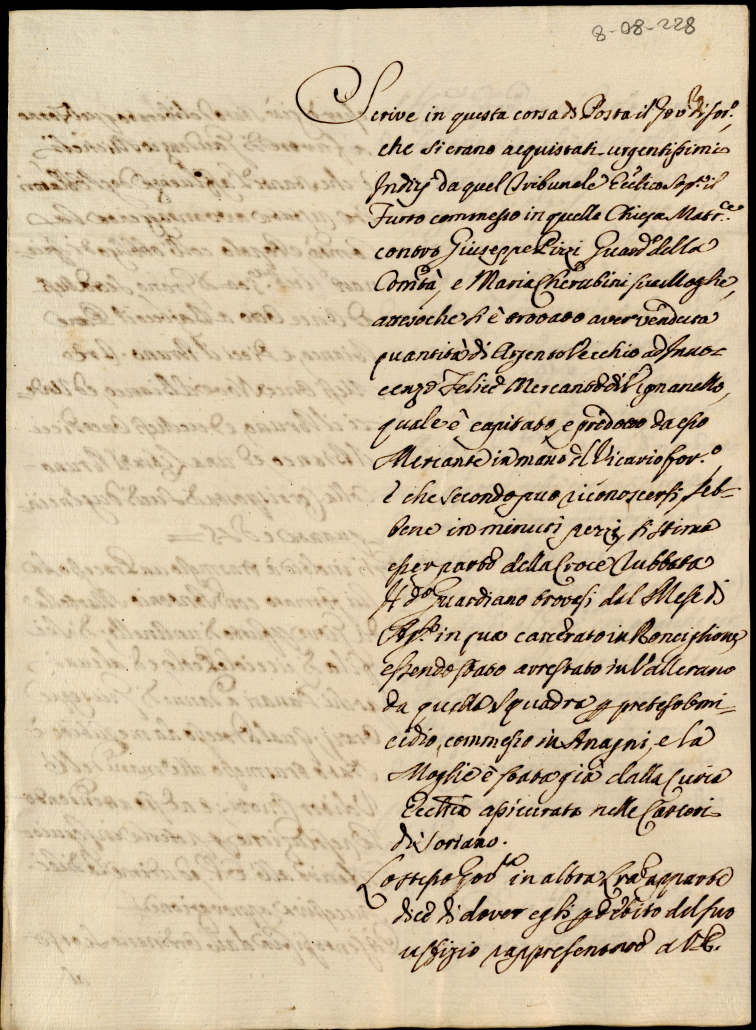 8-08-228
Scrive in questa corsa di Posta il Gov.re di Sor.o
che si erano acquistati urgentissimi
Indizj da quel Tribunale Eccl.tico Sop.a il
Furto commesso in quella Chiesa Matr.ce
contro Giuseppe Pizzi Guard.o della
Com̃tà, e Maria Cherubini sua Moglie,
attesoche si è trovato aver venduta
quantità di Argento Vecchio ad Inno-
cenzo Felice Mercante di Vignanello,
quale è capitato, e prodotto da esso
Mercante in mano del Vicario For.o
E che secondo può riconoscersi, seb-
bene in minuti pezzi, si stima
esser parte della Croce rubbata
Il d.o Guardiano trovasi dal Mese di
Ag.o in qua carcerato in Ronciglione,
essendo stato arrestato in Vallerano
da quella Squadra p preteso Omi-
cidio, commesso in Anagni, e la
Moglie è stata già dalla Curia
Eccl̃tica assicurata nelle Carceri
di Soriano.
Lo stesso Gov.re in altra Lr̃a apparte
dice di dover egli p debito del suo
uffizio rappresentare a V.E.